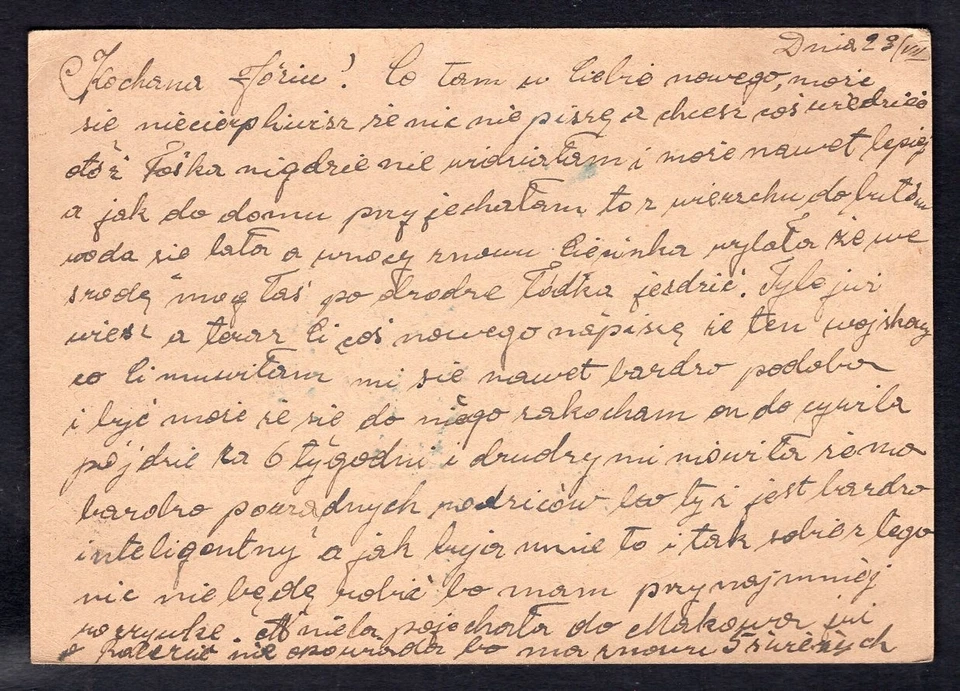 Dnia 23/VII
Kochana Józiu! Co tam u Ciebie nowego, może
się niecierpliwisz że nic nie piszę a chcesz coś wiedzieć
otóż Tośka nigdzie nie widziałam i może nawet lepiej
a jak do domu przyjechałam to z wierzchu do butów
woda się lała a w nocy znowu Ciepinka wylała że we
srodę mogłaś po drodze łódką jezdzić. Tyle już
wiesz a teraz Ci coś nowego napiszę że ten wojskowy
co Ci muwiłam mi się nawet bardzo podoba
i być może że się do niego zakocham on do cywila
pójdzie za 6 tygodni i drudzy mi mówiła że ma
bardzo porządnych rodziców bo tyż jest bardzo
inteligentny a jak buja mnie to i tak sobie z tego
nic nie będę robić bo mam przynajmniej
rozrywkę. niela pojechała do Makowa już
o nie opowiada bo ma znowu 5 świeżych